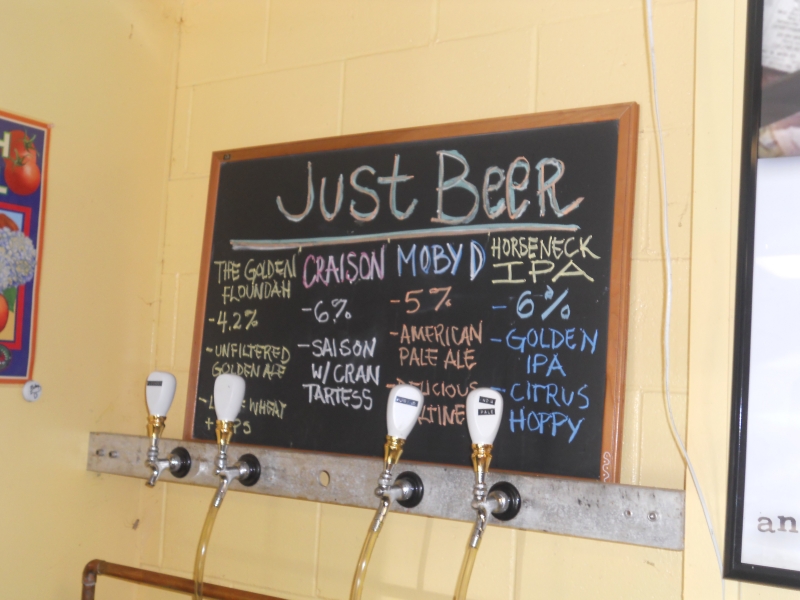 JUST BEER
THE GOLDEN
FLOUNDAH
-4.2%
-UNFILTERED
GOLDEN ALE
WHEAT
CRAISON
-6%
-SAISON
W/ CRAN
TARTESS
MOBY D
-5%
-AMERICAN
PALE ALE
-DELICIOUS
HORSENECK
IPA
-6%
-GOLDEN
IPA
-CITRUS
HOPPY
an